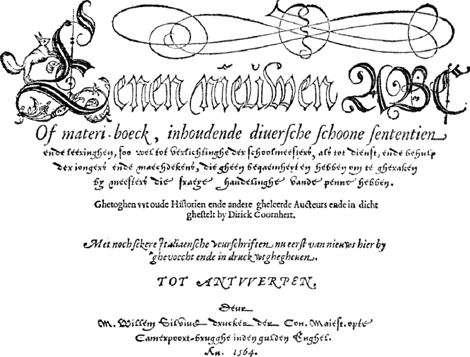 Eenen nieuwen ABC
Of materi-boeck, inhoudende diuersche schoone sententien
ende leeringhen, soo wel tot verlichtinghe der schoolmeesters, als tot dienst, ende behulp
der iongers ende maechdekens, die gheen bequaemheyt en hebben om te gheraken
by meesters die fraeye handelinghe vande penne hebben.
Ghetoghen vyt oude Historien ende andere gheleerde Aucteurs ende in dicht
ghestelt by Dirick Coornhert.
Met noch sekere Italiaensche veurschriften nu eerst van nieuws hier by
ghevoecht ende in druck wtghegheuen.
TOT ANTVVERPEN,
Deur
M. Willem Silvius drucker der Con. Maiest. opte
Camerpoort-brugghe inden gulden Enghel.
An. 1564.